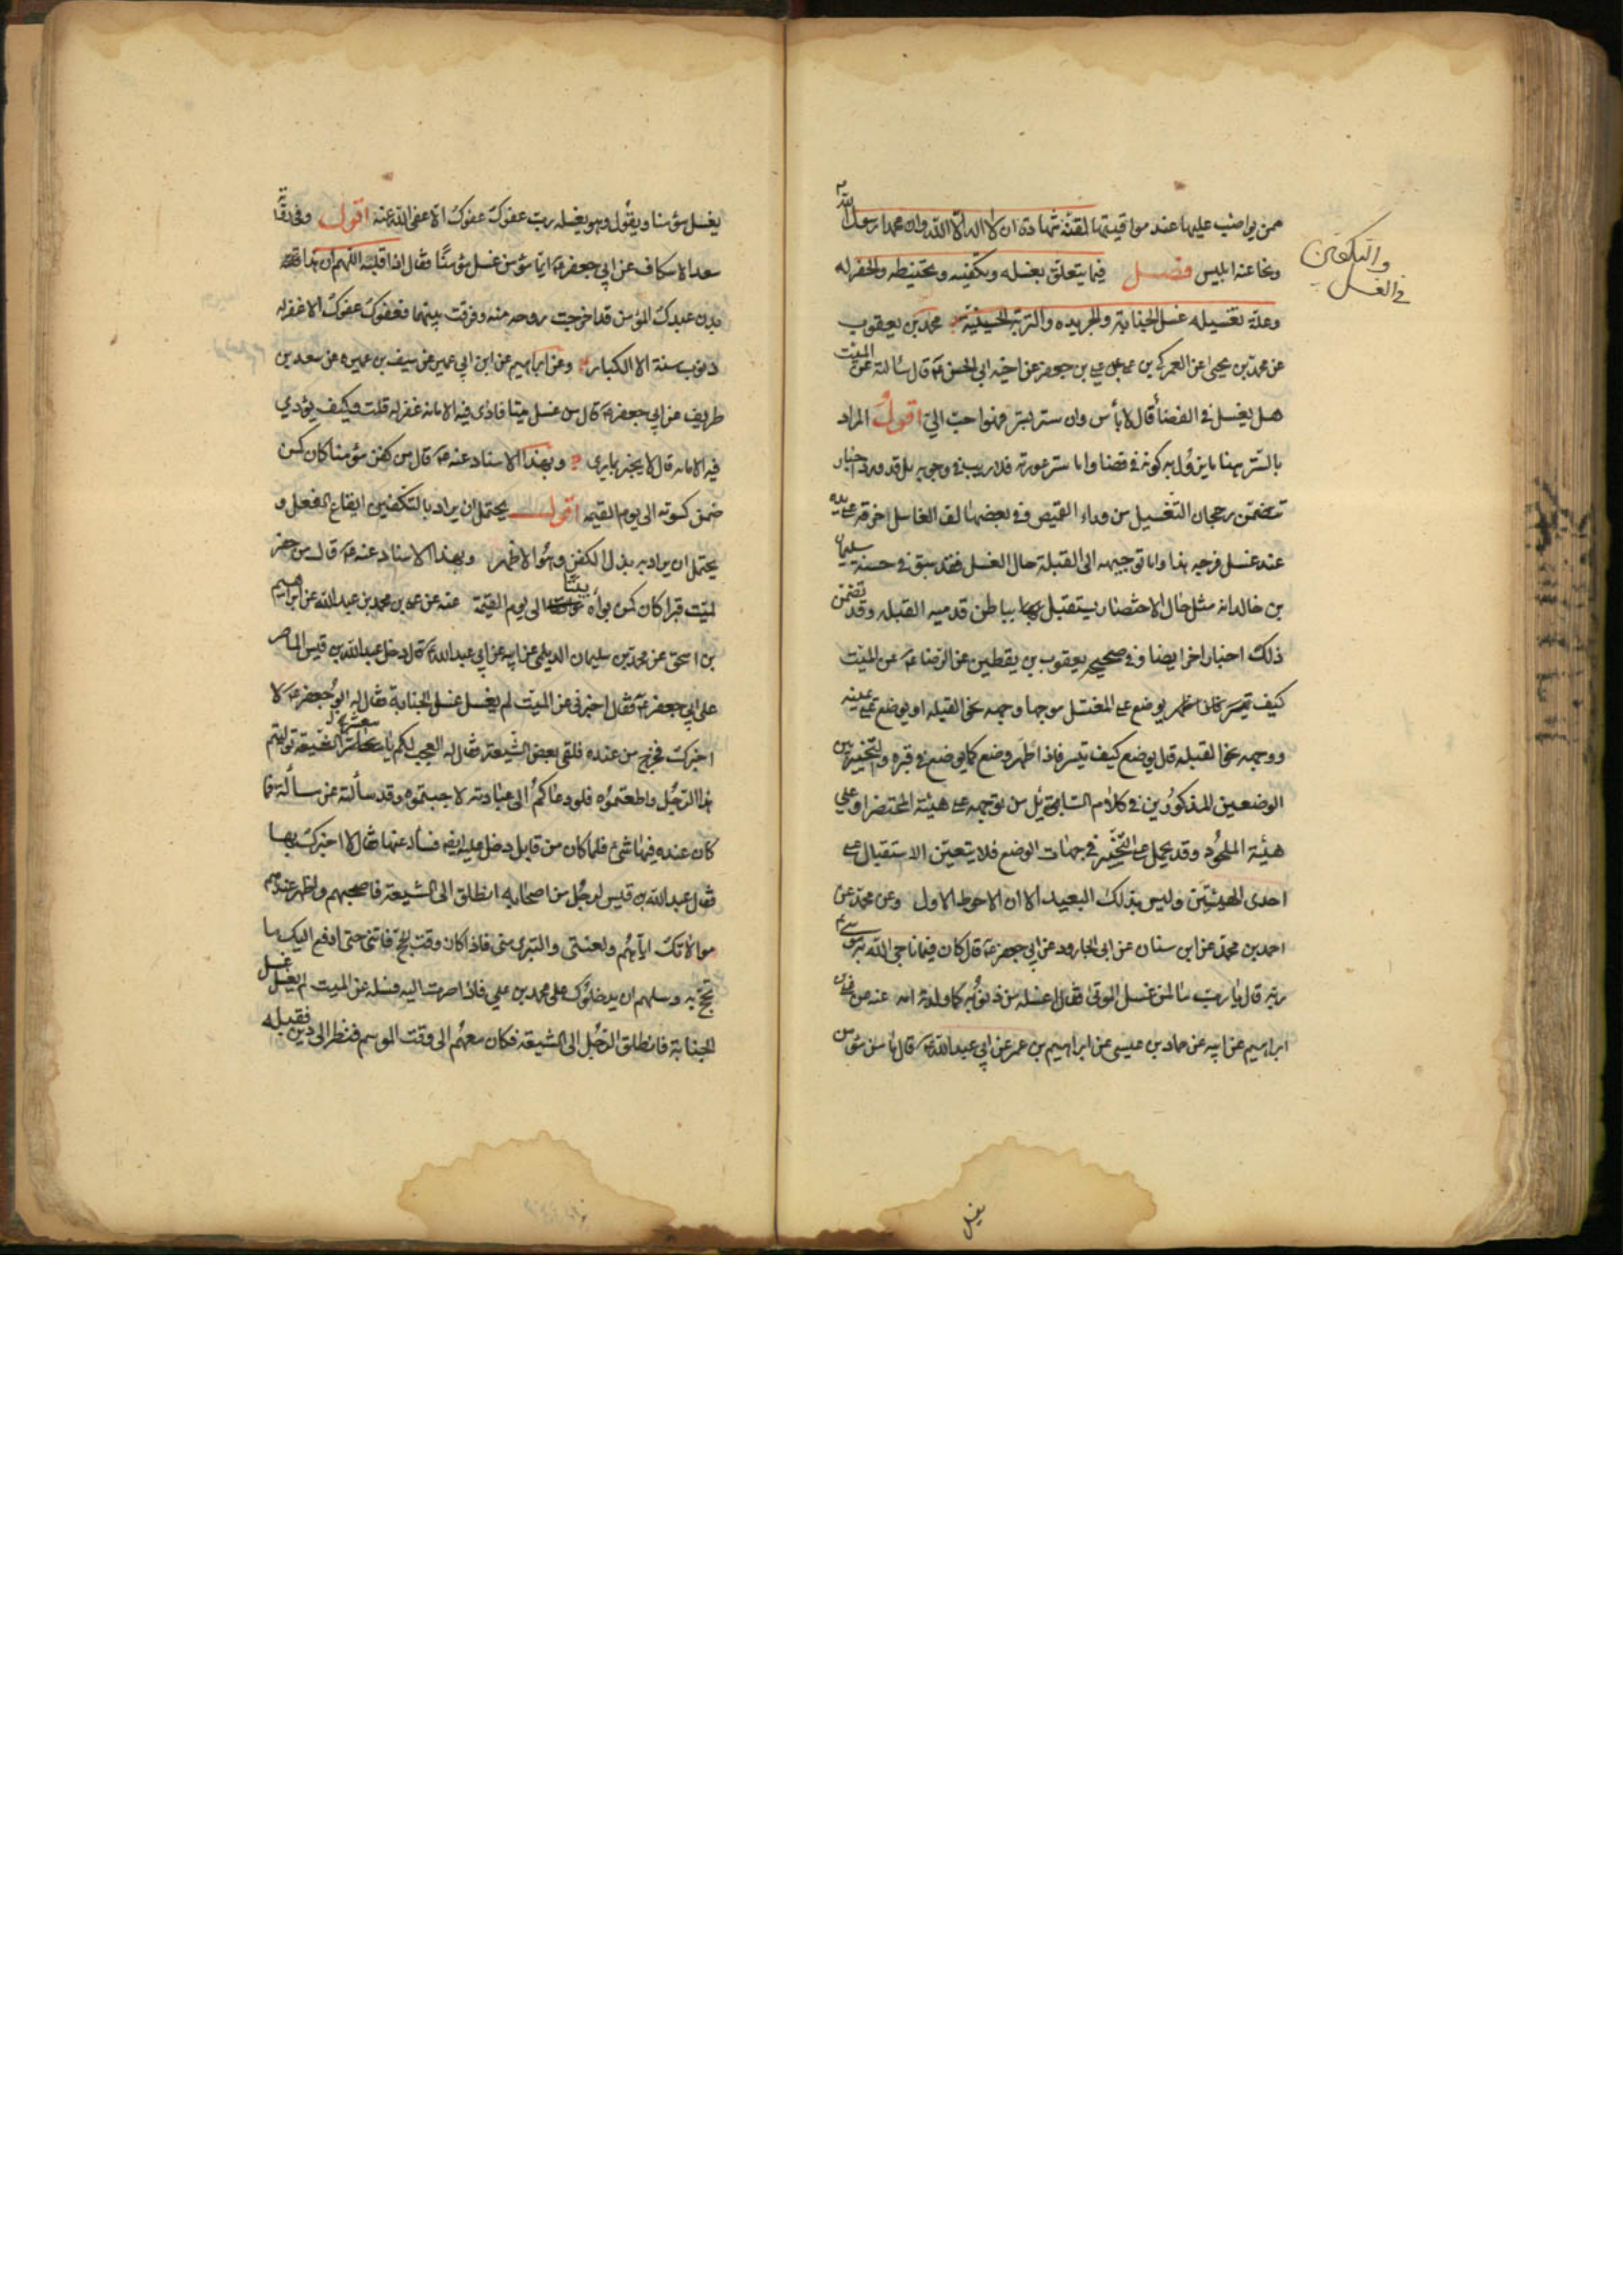 ممن يواضب عليها عند مواقيتها لقنه شهادة ان لا اله الا الله وان محمدا رسول الله
ونحا عنه ابليس فصل فيما يتعلق بغسله وتكفينه وتحنيطه والحفر له
وعلة تغسيله غسل الجنابة والجريده والتربة الحسينية محمد بن يعقوب
عن محمد بن يحيى عن العمركي بن علي عن علي بن جعفر عن اخيه ابي الحسن ع قال سألته عن الميت
هل يغسل في الفضا قال لا بأس وان ستر بستر فهو احب الي اقول المراد
بالستر هنا ما يزول به كونه في فضا واما ستر عورته فلا ريب في وجوبه بل قد ورد اخبار
تتضمن رجحان التغسيل من وراء القميص وفي بعضها لف الغاسل خرقة على يده
عند غسل فرجه هذا واما توجيهه الى القبلة حال الغسل فقد سبق في حسنة سليمان
بن خالد انه مثل حال الاحتضار يستقبل بباطن قدميه القبله وقد تضمن
ذلك اخبار اخر ايضا وفي صحيح يعقوب بن يقطين عن الرضا ع عن الميت
كيف يوضع على المغتسل موجها وجهه نحو القبله او يوضع على يمينه
ووجهه نحو القبله قال يوضع كيف تيسر فاذا طهر وضع كما يوضع في قبره والتخيير بين
الوضعين المذكورين في كلام السايل من توجهه على هيئة المحتضر او على
هيئة الملحود وقد يحمل على التخيير في جهات الوضع فلا يتعين الاستقبال على
احدى الهيئتين وليس بذلك البعيد الا ان الاحوط الاول وعن محمد عن
احمد بن محمد عن ابن سنان عن ابي الجارود عن ابي جعفر ع قال كان فيما ناجى الله به موسى
ربه قال يا رب ما لمن غسل الموتى فقال اغسله من ذنوبه كما ولدته امه عنه عن علي بن
ابراهيم عن ابيه عن حماد بن عيسى عن ابراهيم بن عمر عن ابي عبد الله ع قال ما من مؤمن
والتكفين
في الغسل
يغسل
يغسل مؤمنا ويقول وهو يغسله رب عفوك عفوك الا عفى الله عنه اقول وفي رواية
سعد الاسكاف عن ابي جعفر ع ايما مؤمن غسل مؤمنا فقال اذا قلبه اللهم ان هذا
بدن عبدك المؤمن قد اخرجت روحه منه وفرقت بينهما فعفوك عفوك الا غفر له
ذنوب سنة الا الكباير وعن ابراهيم عن ابن ابي عمير عن سيف بن عميره عن سعد بن
طريف عن ابي جعفر ع قال من غسل ميتا فادى فيه الامانه غفر له قلت وكيف يؤدي
فيه الامانه قال لا يخبر بما يرى وبهذا الاسناد عنه ع قال من كفن مؤمنا كان كمن
ضمن كسوته الى يوم القيمه اقول يحتمل ان يراد بالتكفين ايقاع الفعل و
يحتمل ان يراد به بذل الكفن وهو الاظهر وبهذا الاسناد عنه ع قال من حفر
لميت قبرا كان كمن بوأه بيتا الى يوم القيمة عنه عن علي بن محمد بن عبد الله عن ابراهيم
بن اسحق عن محمد بن سليمان الديلمي عن ابيه عن ابي عبد الله ع قال دخل عبد الله بن قيس الماصر
على ابي جعفر ع فقال اخبرني عن الميت لم يغسل غسل الجنابة فقال له ابو جعفر ع لا
اخبرك فخرج من عنده فلقي بعض الشيعة فقال له العجب لكم يا معشر الشيعة توليتم
هذا الرجل واطعتموه فلو دعاكم الى عبادته لاجبتموه وقد سألته عن مسألة فما
كان عنده فيها شئ فلما كان من قابل دخل عليه ايضا فسأله عنها فقال لا اخبرك بها
فقال عبد الله بن قيس لرجل من اصحابه انطلق الى الشيعة فاصحبهم واظهر عندهم
موالاتك اياهم ولعنتي والتبري مني فاذا كان وقت الحج فأتني حتى ادفع اليك ما
تحج به وسلهم ان يدخلوك على محمد بن علي فاذا صرت اليه فسله عن الميت لم يغسل غسل
الجنابة فانطلق الرجل الى الشيعة فكان معهم الى وقت الموسم فنظر الى دين فقبله